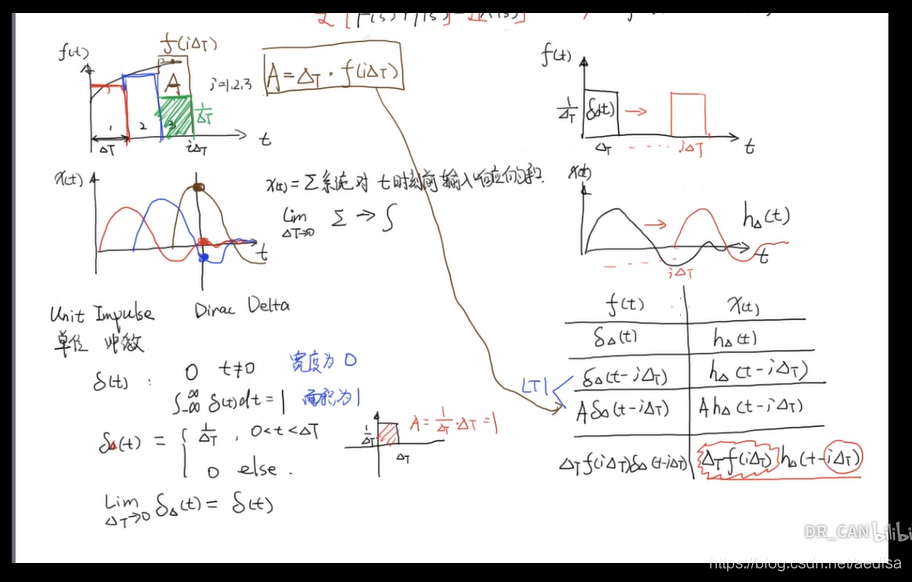 f(iΔT)
f(t)
A
i=1,2,3
1/ΔT
1 2 3
ΔT
iΔT
t
A = ΔT · f(iΔT)
f(t)
1/ΔT
δΔ(t)
ΔT
iΔT
t
x(t)
t
x(t) = Σ系统对 t时刻前输入响应的和
Lim ΔT→0 Σ → ∫
x(t)
hΔ(t)
t
iΔT
Unit Impulse
Dirac Delta
单位 冲激
δ(t) : 0 t≠0 宽度为 0
∫-∞^∞ δ(t)dt = 1 面积为1
δΔ(t) = { 1/ΔT , 0<t<ΔT
0 else .
Lim ΔT→0 δΔ(t) = δ(t)
1/ΔT
ΔT
A = 1/ΔT · ΔT = 1
f(t) x(t)
δΔ(t) hΔ(t)
LTI
δΔ(t-iΔT) hΔ(t-iΔT)
AδΔ(t-iΔT) AhΔ(t-iΔT)
ΔT f(iΔT)δΔ(t-iΔT) ΔT f(iΔT) hΔ(t-iΔT)
DR_CAN bilibili
https://blog.csdn.net/aedisa